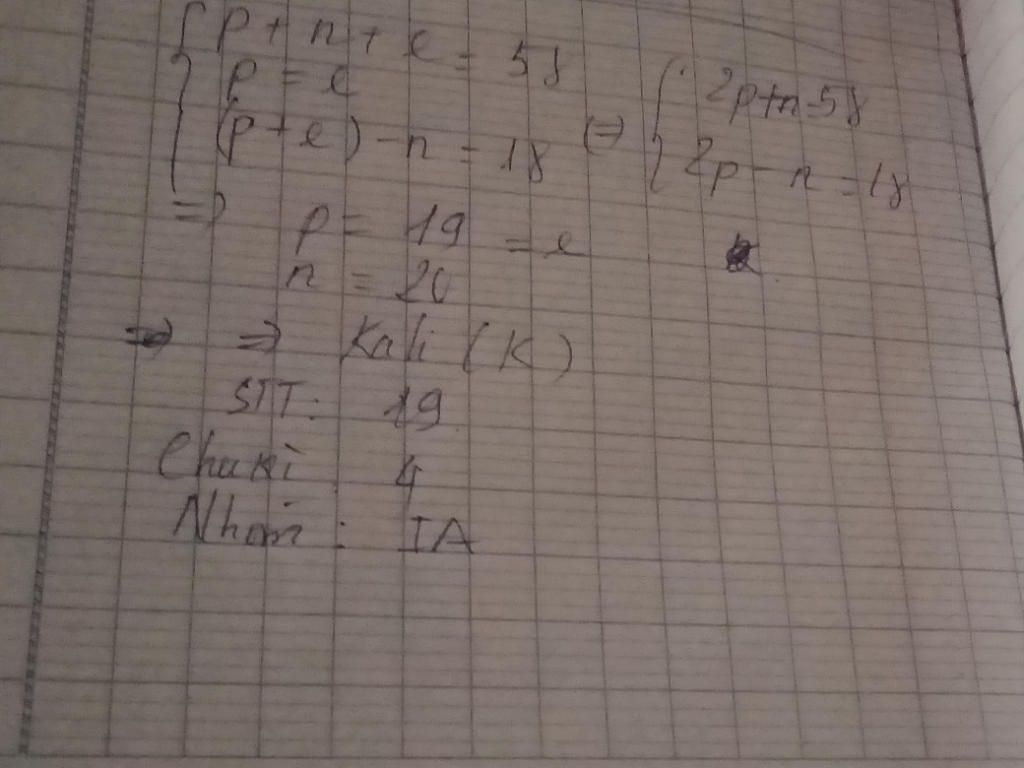 p + n + e = 58
p = e
(p + e) - n = 18 (=) 2p+n=58
2p - n = 18
=) p = 19 = e
n = 20
=) =) Kali (K)
STT: 19
Chu kì : 4
Nhóm : IA